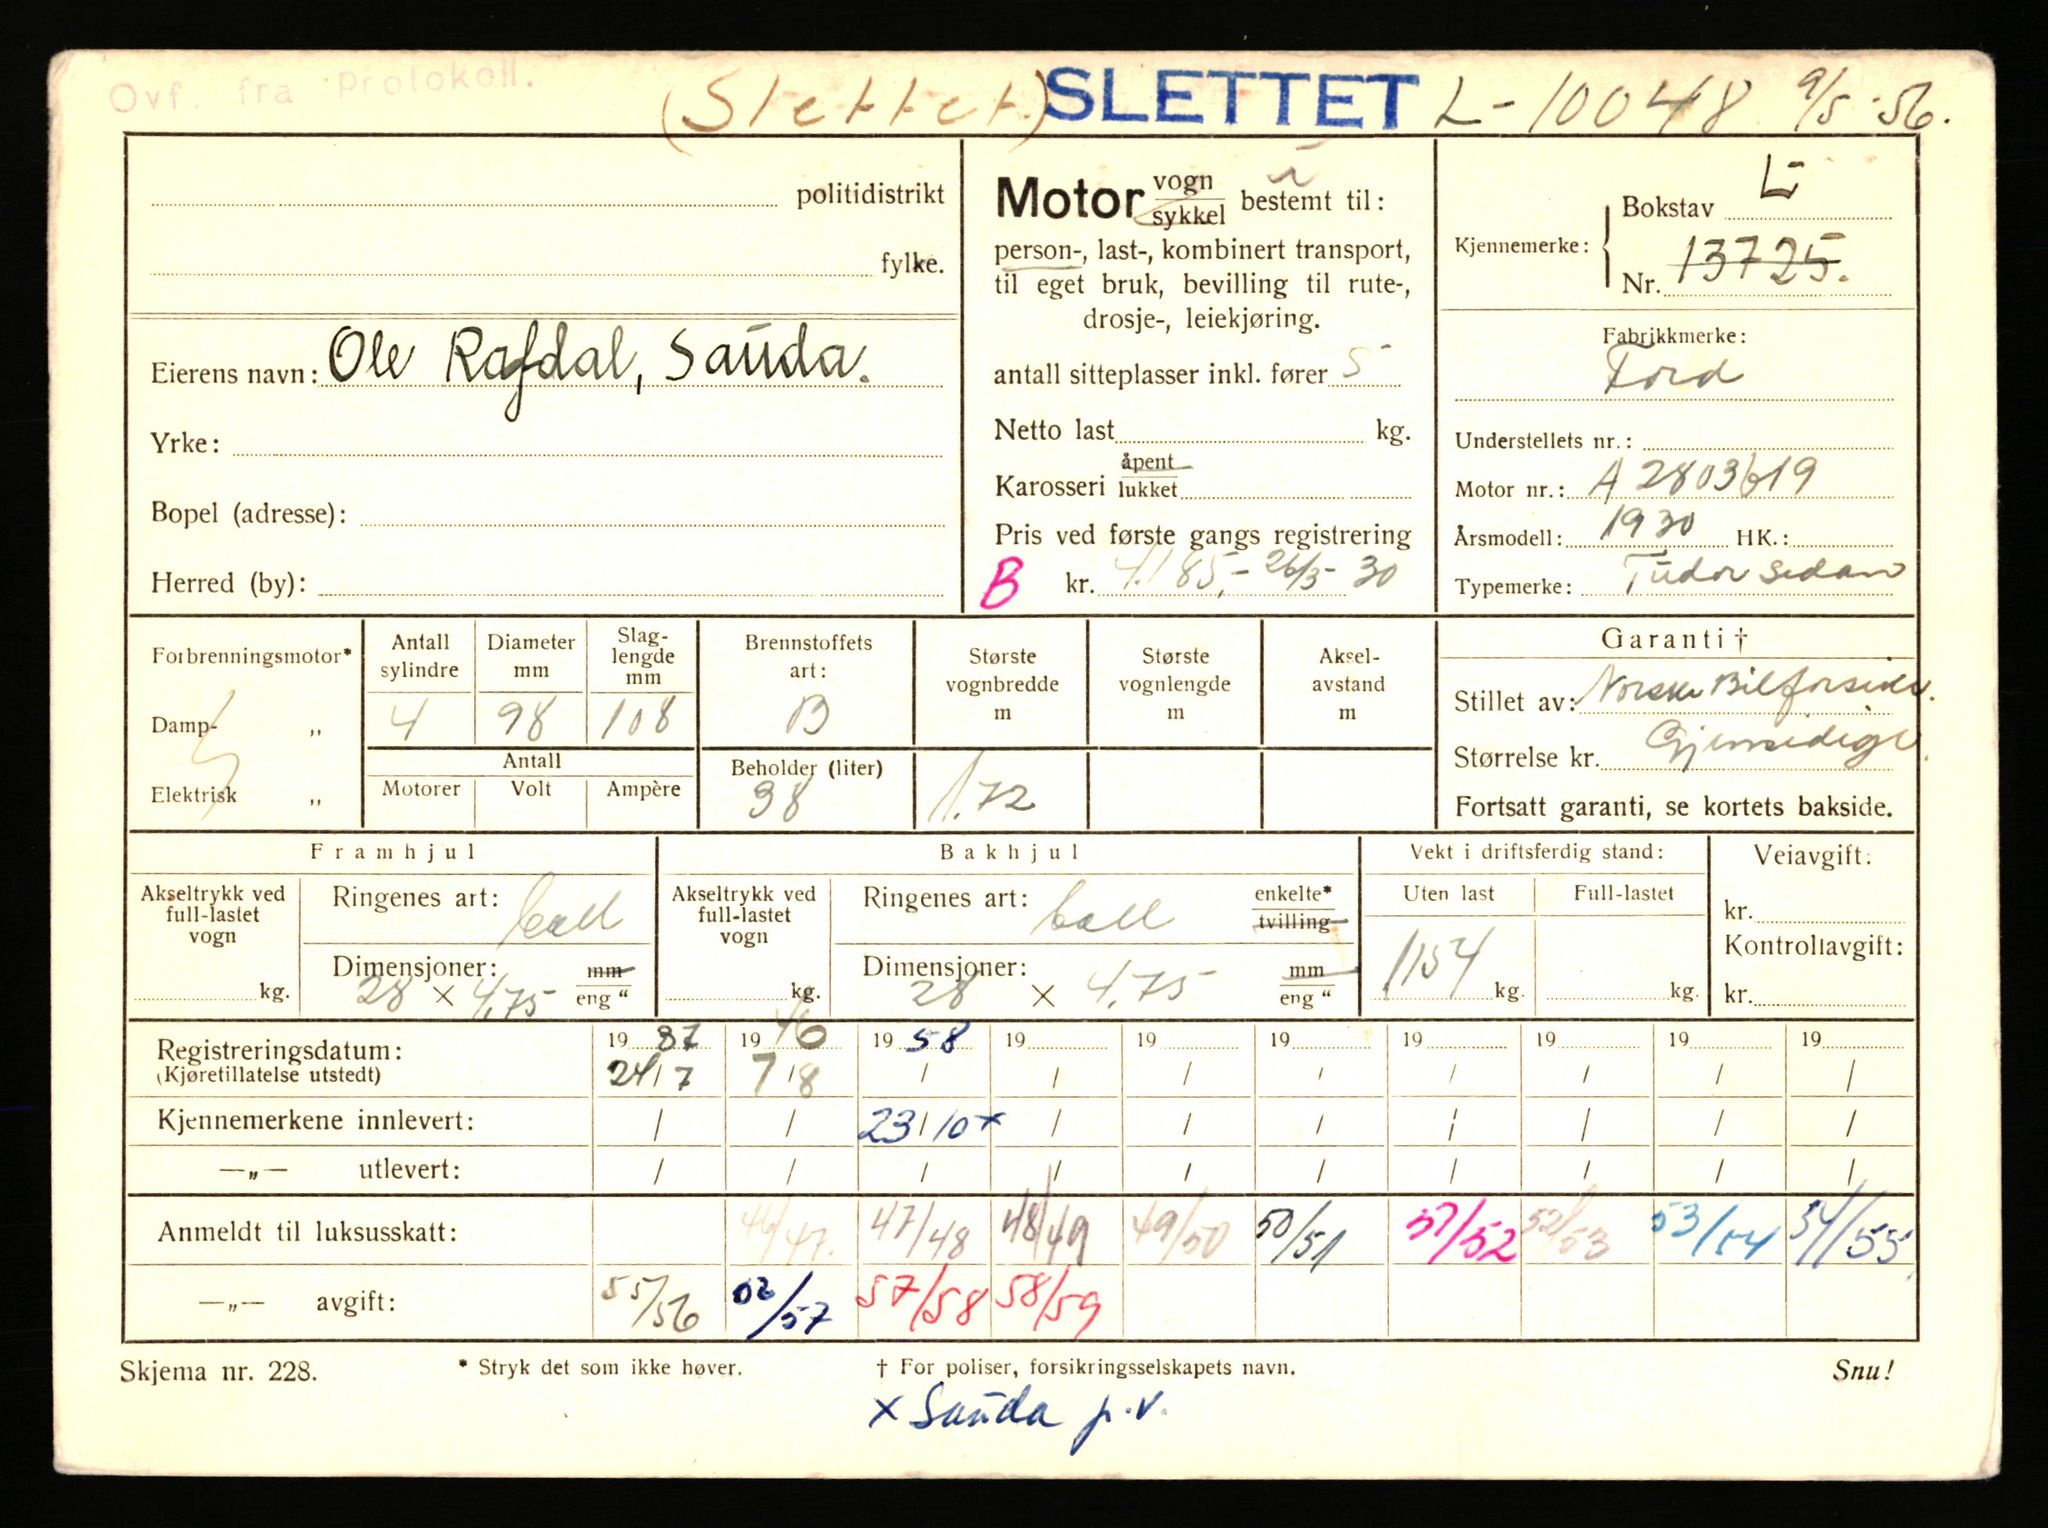 Ovf. fra Protokoll.
(Slettet.) SLETTET L-10048 9/5-56.
politidistrikt
fylke.
Eierens navn: Ole Rafdal, Sauda.
Yrke:
Bopel (adresse):
Herred (by):
Motor vogn sykkel bestemt til:
person-, last-, kombinert transport,
til eget bruk, bevilling til rute-,
drosje-, leiekjøring.
antall sitteplasser inkl. fører 5
Netto last kg.
Karosseri åpent lukket
Pris ved første gangs registrering
B kr. 4.185,- 26/3-30
Kjennemerke: Bokstav L-
Nr. 13725.
Fabrikkmerke:
Ford
Understellets nr.:
Motor nr.: A 2803619
Årsmodell: 1930 HK.:
Typemerke: Tudor sedan
Forbrenningsmotor*
Damp- „
Elektrisk „
Antall sylindre
4
Diameter mm
98
Slag-lengde mm
108
Antall
Motorer Volt Ampère
Brennstoffets art:
B
Beholder (liter)
38
Største vognbredde m
1.72
Største vognlengde m
Aksel-avstand m
Garanti †
Stillet av: Norske Bilforsikr.
Størrelse kr. Gjensidige
Fortsatt garanti, se kortets bakside.
Framhjul
Akseltrykk ved full-lastet vogn
kg.
Ringenes art: ball
Dimensjoner: mm
28 × 4,75 eng "
Bakhjul
Akseltrykk ved full-lastet vogn
kg.
Ringenes art: ball enkelte* tvilling
Dimensjoner: mm
28 × 4,75 eng "
Vekt i driftsferdig stand:
Uten last Full-lastet
1154 kg. kg.
Veiavgift:
kr.
Kontrollavgift:
kr.
Registreringsdatum: 19 37 19 46 19 58 19 19 19 19 19 19 19
(Kjøretillatelse utstedt) 24/7 7/8 / / / / / / / /
Kjennemerkene innlevert: / / 23/10 × / / / / / / /
—„— utlevert: / / / / / / / / / /
Anmeldt til luksusskatt: 46/47. 47/48 48/49 49/50 50/51 51/52 52/53 53/54 54/55
—„— avgift: 55/56 56/57 57/58 58/59
Skjema nr. 228. * Stryk det som ikke høver. † For poliser, forsikringsselskapets navn. Snu!
× Sauda p.v.